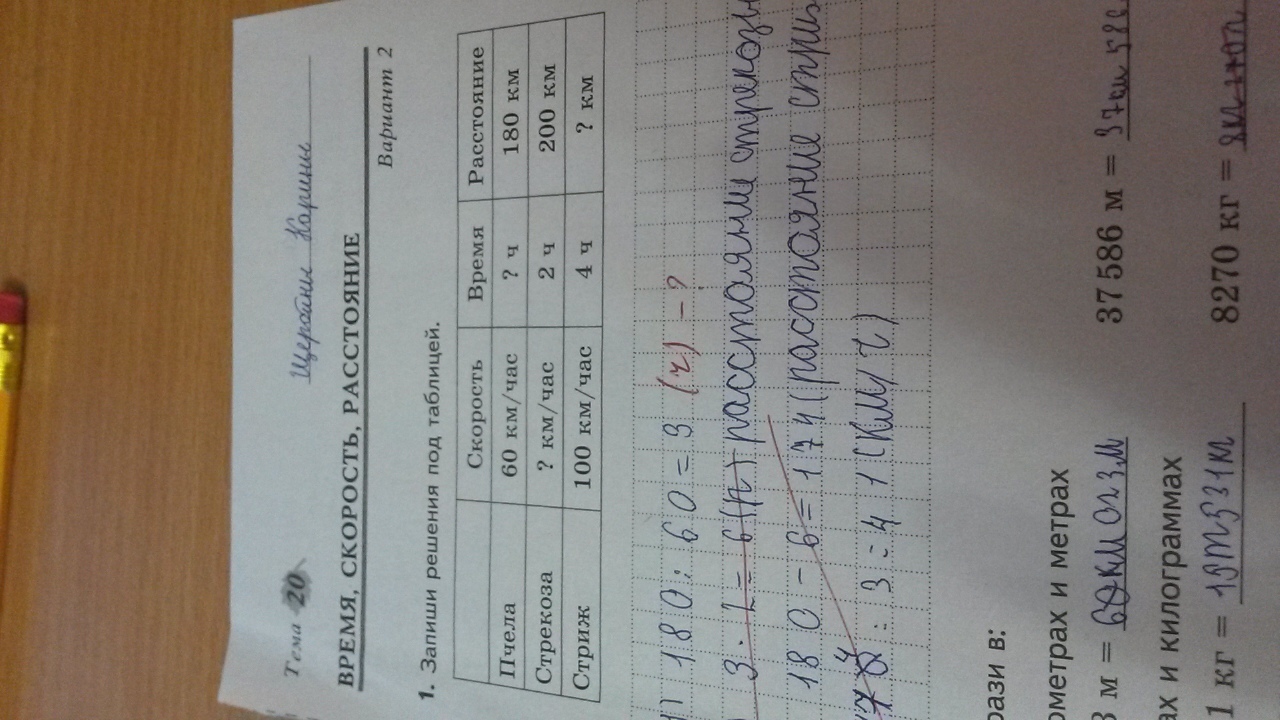 Тема 20
Щербайн Карины
ВРЕМЯ, СКОРОСТЬ, РАССТОЯНИЕ
Вариант 2
1. Запиши решения под таблицей.
Скорость Время Расстояние
Пчела 60 км/час ? ч 180 км
Стрекоза ? км/час 2 ч 200 км
Стриж 100 км/час 4 ч ? км
1) 180 : 60 = 3 (ч) – ?
3 · 2 = 6 расстояние стрекозы
180 – 6 = 174 (расстояние стриж
: 3 = 41 (км/ч)
рази в:
ометрах и метрах
3 м = 60км 023м 37 586 м = 37км 586
ах и килограммах
1 кг = 19т331кг 8270 кг =